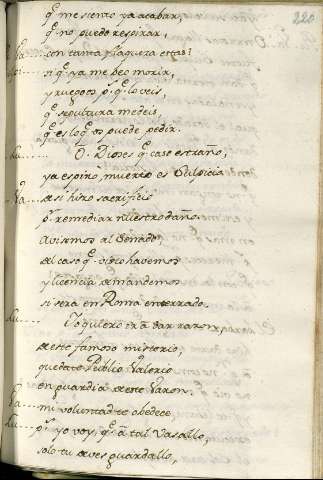 220
q.e me siento ya acabar,
q.e no puedo respirar,
con tanta flaquera estas?
si q.e ya me beo morir,
y ruegoos p.s q.e lo veis,
q.e sepultura me deis,
q.e es lo q.e os puede pedir.
O Dioses q.e caso estraño,
ya espiró, muerto es Sulpicia
de si hizo sacrificio
p.a remediar nuestro daño.
avisemos al Senado
del caso q.e visto havemos
y licencia demandemos
si será en Roma enterrado.
Io quiero ir á dar razon,
de este famoso misterio,
quedate Publio Valerio
en guardia de este Varon,
mi voluntad te obedece
p.s yo voy, q.e á tal Vasallo,
solo tu deves guardallo,